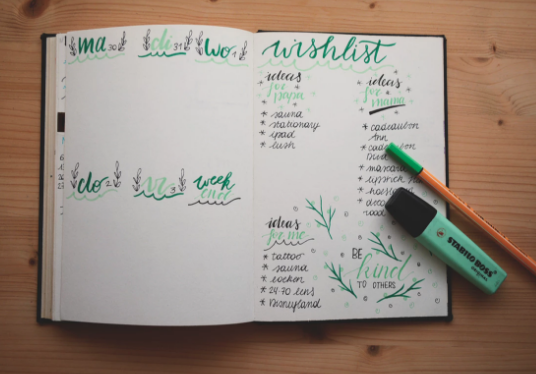 ma 30
di 31
wo 1
do 2
vr 3
week
end
wishlist
ideas
for
papa
* sauna
* stationary
* ipad
* lush
ideas
for
mama
* cadeaubon
Ann
*
* mascara
* lipstick
ideas
for me
* tattoo
* sauna
* boeken
* 24-70 lens
* Disneyland
BE
kind
TO OTHERS
STABILO BOSS